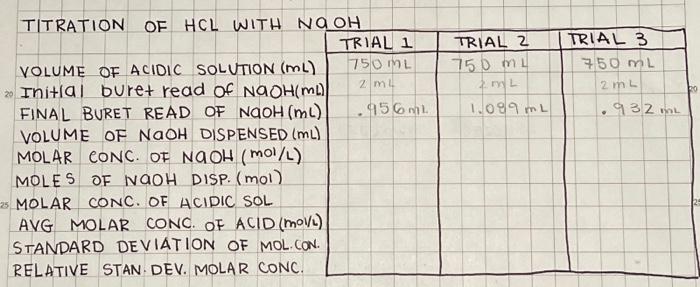 TITRATION OF HCL WITH NaOH
TRIAL 1 TRIAL 2 TRIAL 3
VOLUME OF ACIDIC SOLUTION (mL) 750 mL 750 mL 750 mL
20 Initial buret read of NaOH (mL) 2 mL 2 mL 2 mL 20
FINAL BURET READ OF NaOH (mL) .956 mL 1.089 mL .932 mL
VOLUME OF NaOH DISPENSED (mL)
MOLAR CONC. OF NaOH (mol/L)
MOLES OF NaOH DISP. (mol)
25 MOLAR CONC. OF ACIDIC SOL 25
AVG MOLAR CONC. OF ACID (mol/L)
STANDARD DEVIATION OF MOL. CON.
RELATIVE STAN. DEV. MOLAR CONC.